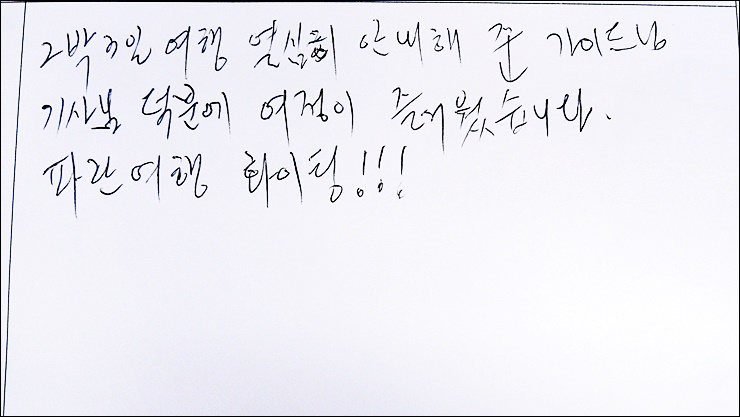 2박3일 여행 열심히 안내해 준 가이드님
기사님 덕분에 여정이 즐거웠습니다.
파란여행 화이팅!!!